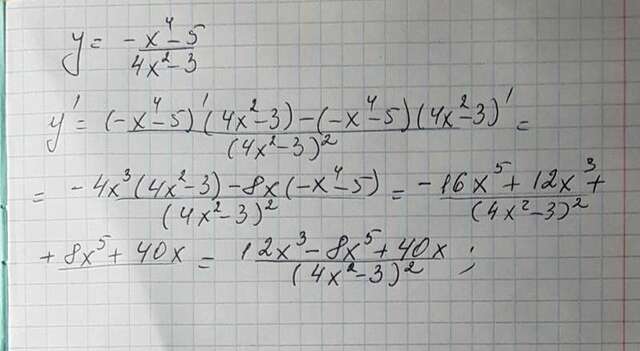 y = (-x⁴-5)/(4x²-3)
y' = ((-x⁴-5)'(4x²-3)-(-x⁴-5)(4x²-3)')/(4x²-3)² =
= (-4x³(4x²-3)-8x(-x⁴-5))/(4x²-3)² = (-16x⁵+12x³+)/(4x²-3)²
+8x⁵+40x = (12x³-8x⁵+40x)/(4x²-3)² ;